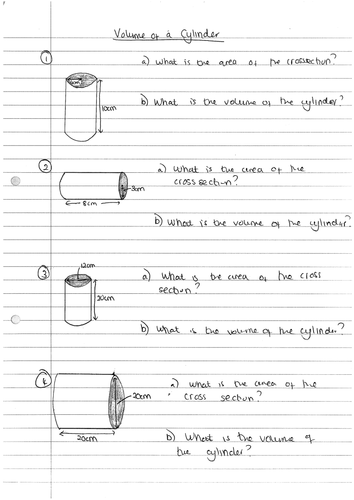 Volume of a Cylinder
① a) What is the area of the crossection?
10cm
b) What is the volume of the cylinder?
② a) What is the area of the
cross section?
3cm
8cm
b) What is the volume of the cylinder?
③ 12cm
a) What is the area of the cross
section?
20cm
b) What is the volume of the cylinder?
④ a) What is the area of the
cross section?
20cm
20cm
b) What is the volume of
the cylinder?